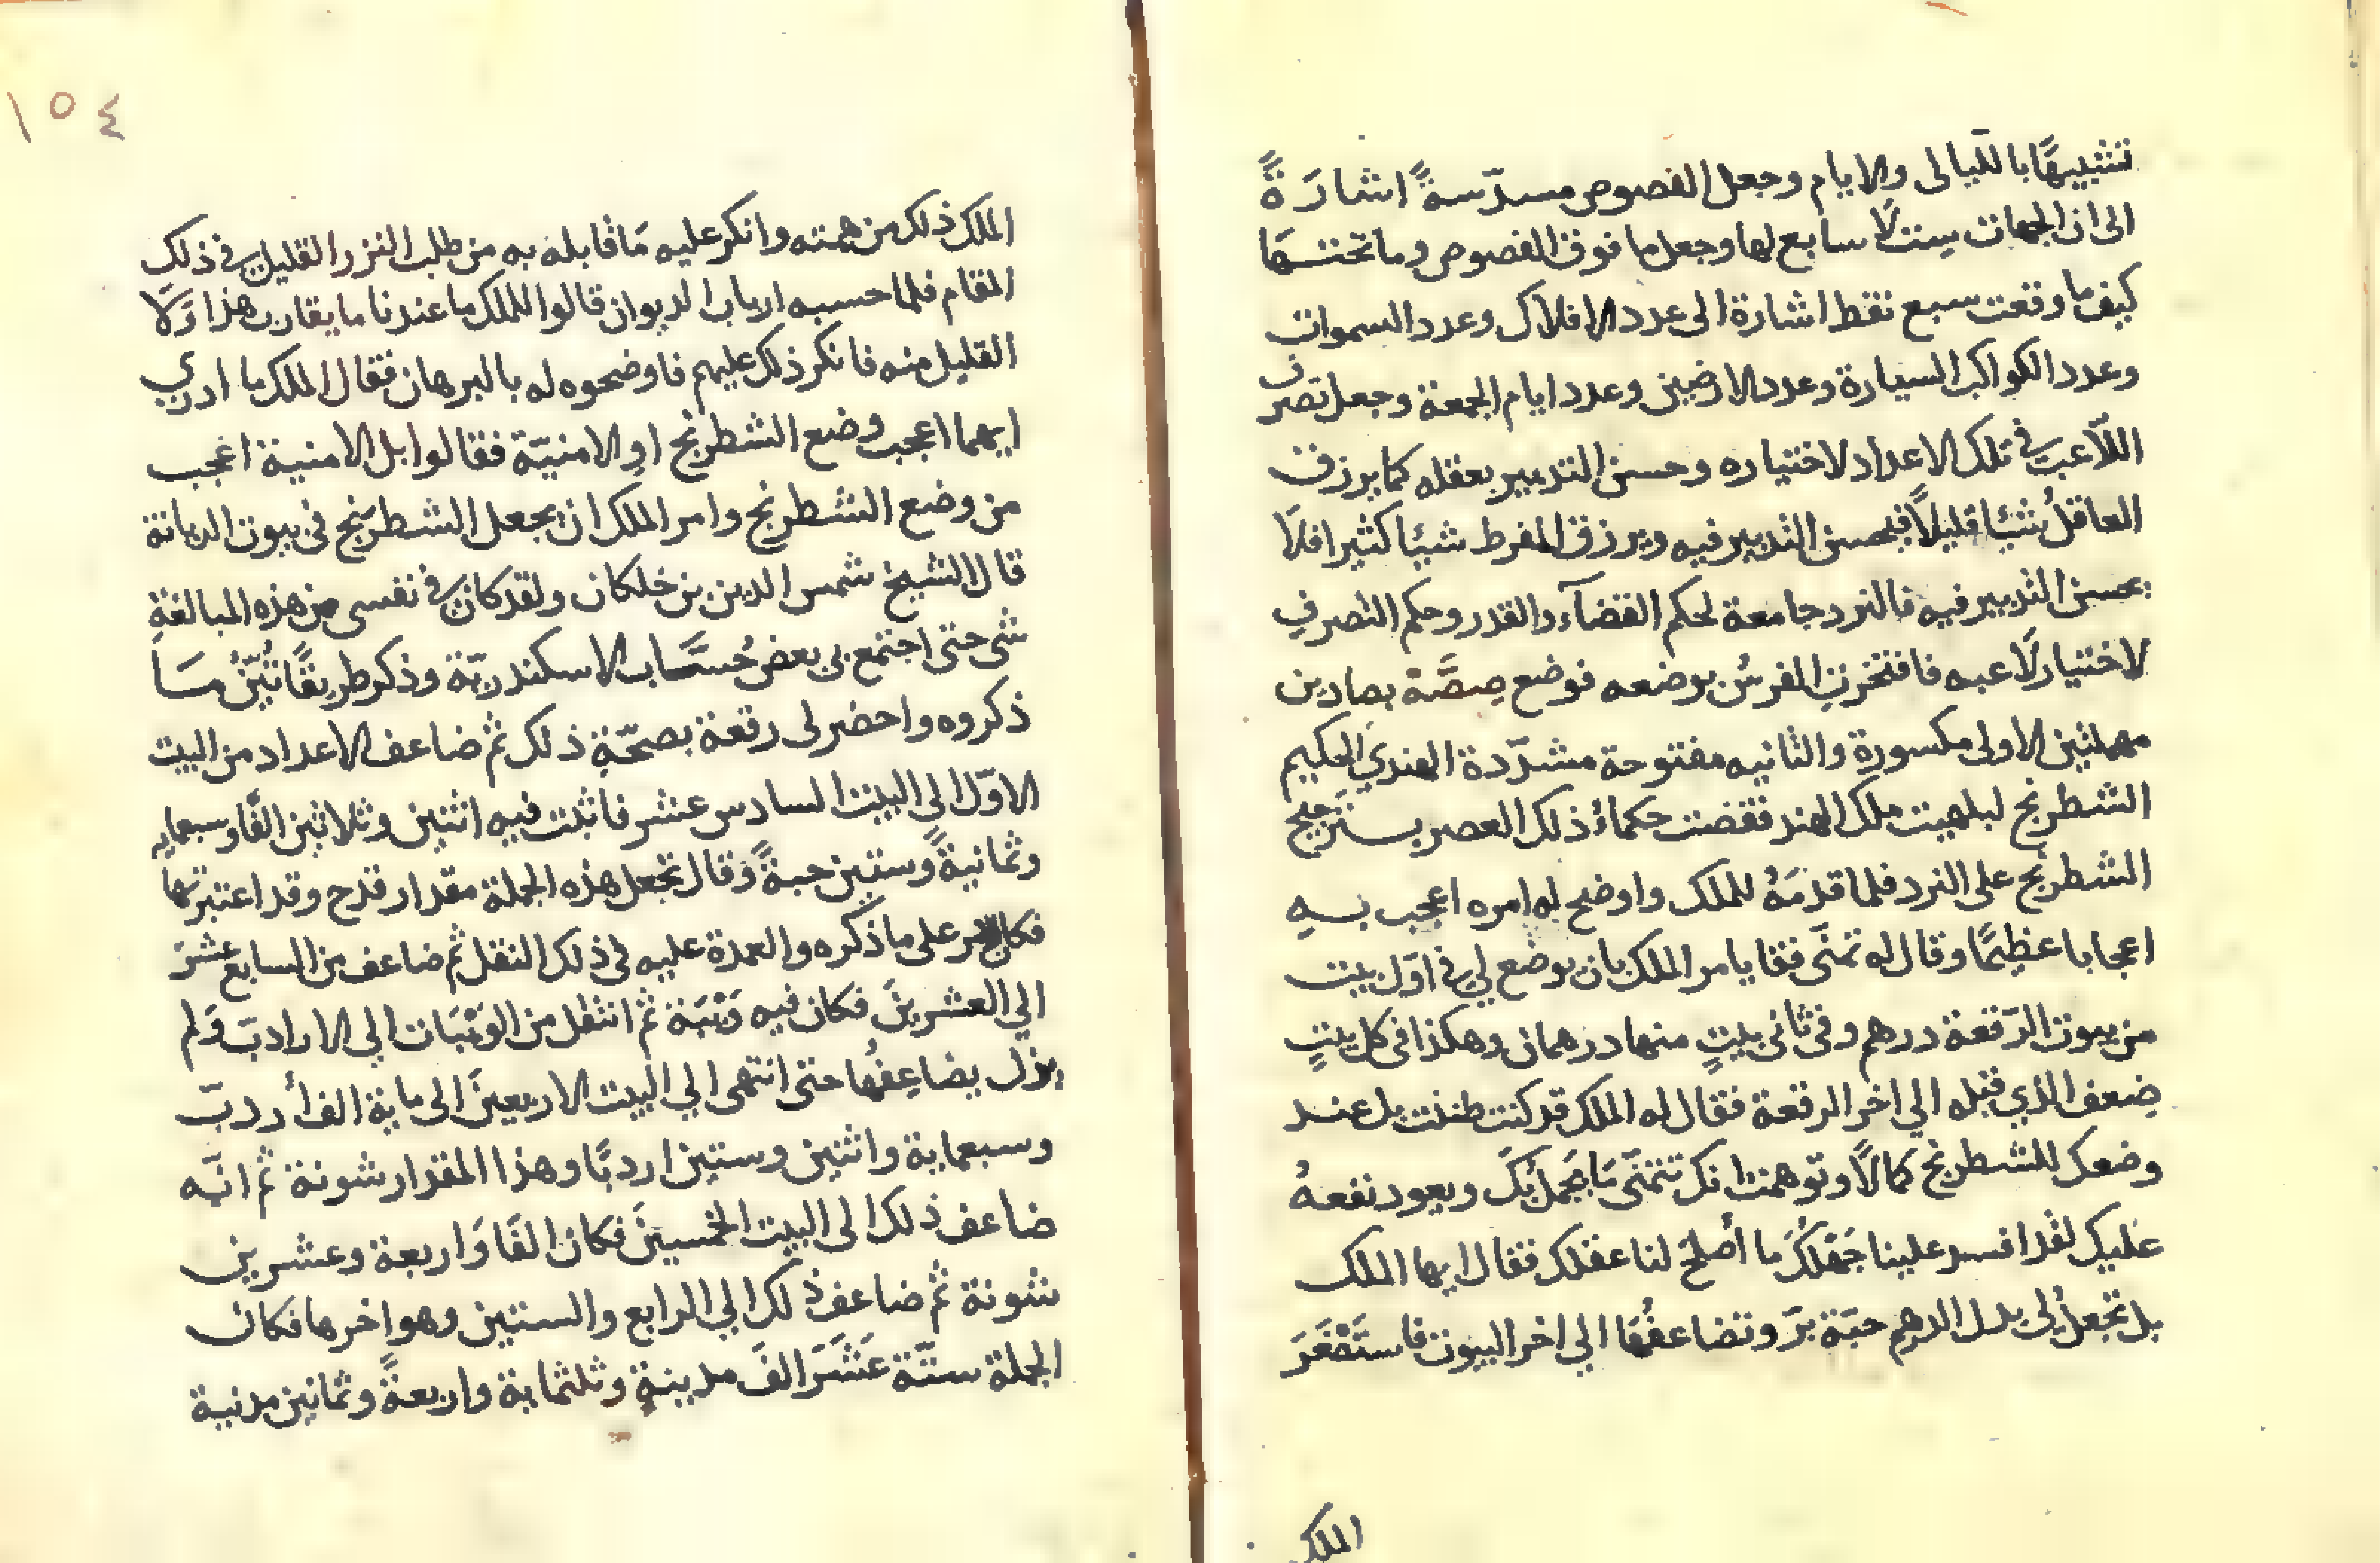 تشبيهًا بالليالى والايام وجعل الفصوص مسدّسةً اشارَةً
الى ان الجهات ست لا سابع لها وجعل ما فوق الفصوص وما تحتها
كيف ما وقعت سبع نقط اشارة الى عدد الافلاك وعدد السموات
وعدد الكواكب السيارة وعدد الارضين وعدد ايام الجمعة وجعل تصرف
اللّاعب في تلك الاعداد لاختياره وحسن التدبير بعقله كما يرزق
العاقلُ شيئا قليلاً فيحسن التدبير فيه ويرزق المفرط شيئا كثيرا فلا
يحسن التدبير فيه فالنرد جامعة لحكم القضآء والقدر وحكم التصرف
لاختيار لاعبه فافتخرت الفرسُ بوضعه فوضع صِصَّة بصادين
مهملتين الاولى مكسورة والثانيه مفتوحة مشدّدة الهندي الحكيم
الشطرنج لبلهيت ملك الهند فقضت حكماءُ ذلك العصر بترجيح
الشطرنج على النرد فلما قدمَهُ للملك واوضح له امره اعجب بهِ
اعجابا عظيمًا وقال له تمنّى فقا يامر الملك بان يوضع لي في اوّل بيت
من بيوت الرّقعة درهم وفى ثانى بيتٍ منها درهمان وهكذا فى كل بيتٍ
ضِعف الذي قبله الي اخر الرقعة فقال له الملك قد كنت ظننت بل عند
وضعك للشطرنج كمالاً وتوهمت انك تتمنّى مَا يَجمل بكَ ويعود نفعهُ
عَليك لقد افسد علينا جَهلكَ ما أصلحَ لنا عقلك فقال ايها الملك
بل تجعلُ لى بدل الدرهم حبّة برّ وتضاعفُها الي اخر البيوت فاستَصْغَرَ
الملك
١٥٤
الملك ذلك من همته وانكر عليه مَا قابله به من طلب النزر القليل في ذلك
المقام فلما حسبه ارباب الديوان قالوا للملك ما عندنا ما يقارب هذا وَلا
القليل منه فانكر ذلك عليهم فاوضحوه له بالبرهان فقال الملك ما ادري
ايهما اعجب وضع الشطرنج او الامنيّة فقالوا بل الامنية اعجب
من وضع الشطرنج وامر الملك ان يجعل الشطرنج فى بيوت الديانة
قال الشيخ شمس الدين بن خلكان ولقد كان في نفسى من هذه المبالغةِ
شى حتى اجتمع بى بعض حُسَّاب الاسكندريّة وذكر طريقًا تُبَيّنُ مَا
ذكروه واحضر لى رقعة بصحّةِ ذلك ثم ضاعف الاعداد من البيت
الاوّل الى البيت السادس عشر فاثبت فيه اثنين وثلاثين الفًا وسبعمايه
وثمانيةً وستين حبةً وقال تجعل هذه الجملة مقدار قدح وقد اعتبرتها
فكان الامر على ما ذكره والعمدة عليه فى ذلك النقل ثم ضاعف من السابع عشرَ
الي العشرينَ فكان فيه وَيْبَة ثم انتقل من الوَيْبَات الي الارادبّ وَلم
يزل يضاعِفُها حتى انتهى الي البيت الاربعينَ الى ماية الف أردبّ
وسبعماية واثنين وستين اردبًا وهذا المقدار شونة ثم انّه
ضاعف ذلك الى البيت الخمسينَ فكان الفًا وَاربعة وعشرين
شونة ثم ضاعف ذلك الي الرابع والستين وهو اخرها فكان
الجملة ستّة عَشَرَ الفَ مدينةٍ وثلثماية واربعةً وثمانين مدنية